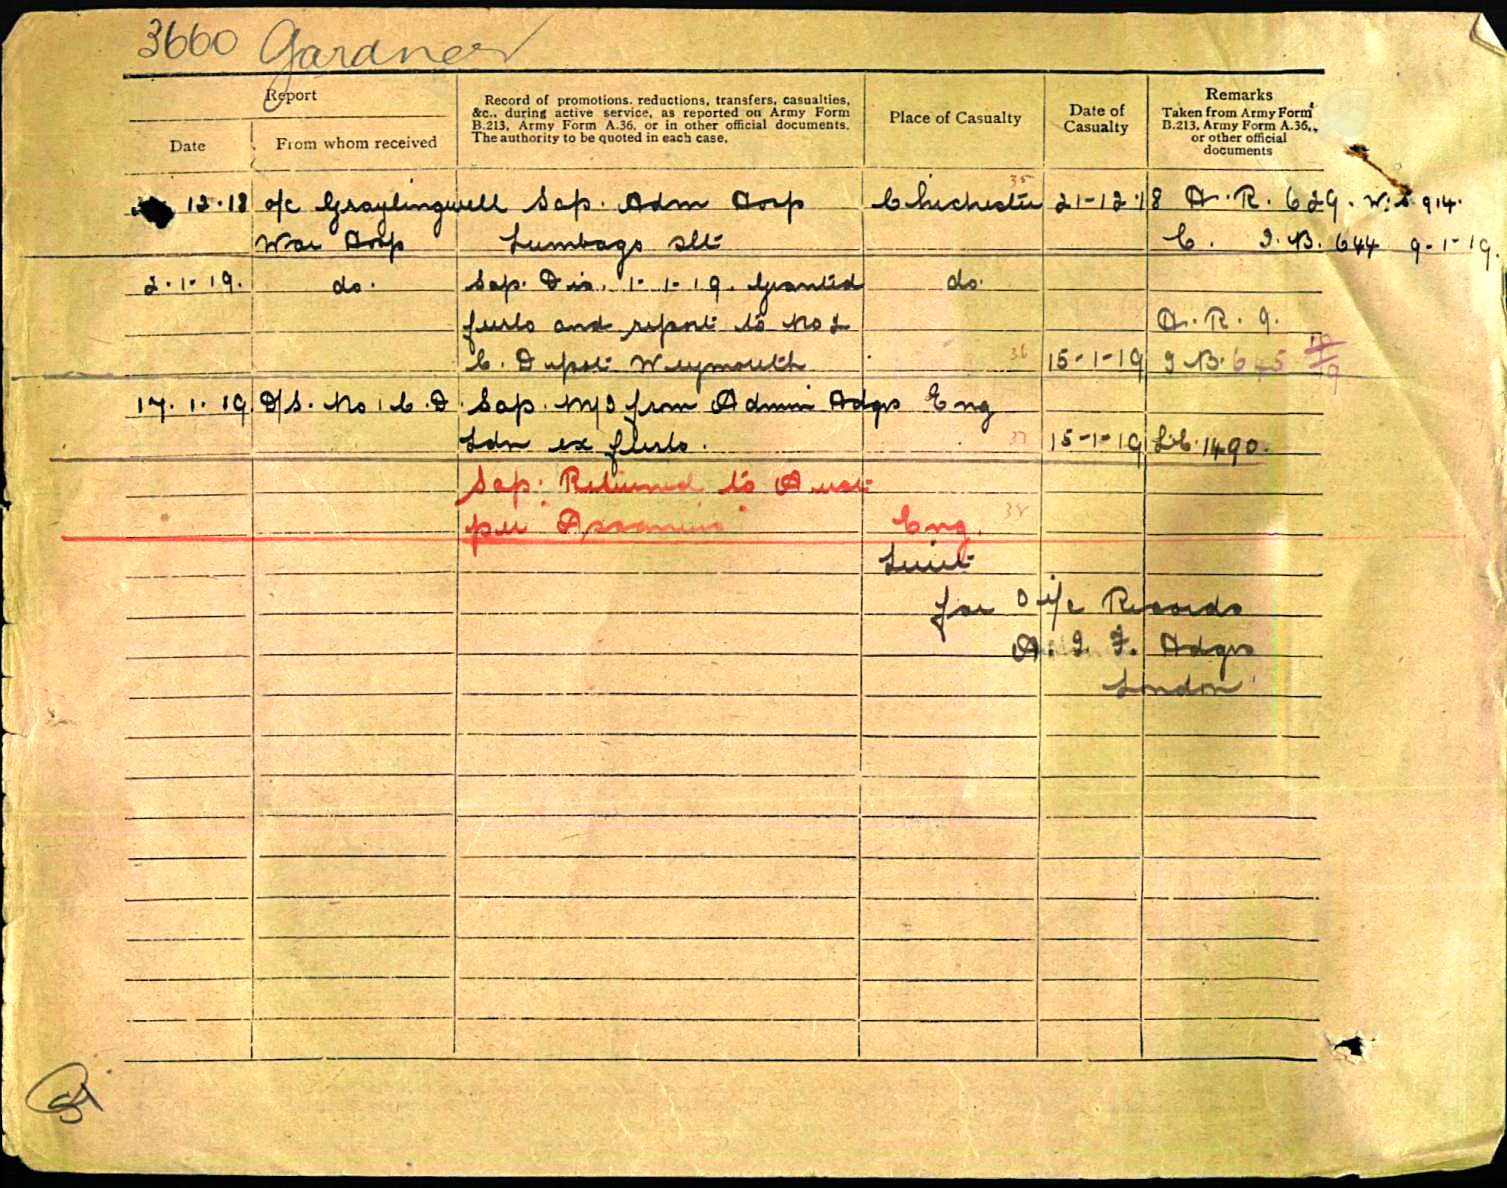 3660 Gardner
Report
Date
From whom received
Record of promotions, reductions, transfers, casualties,
&c., during active service, as reported on Army Form
B.213, Army Form A.36, or in other official documents.
The authority to be quoted in each case.
Place of Casualty
Date of
Casualty
Remarks
Taken from Army Form
B.213, Army Form A.36,
or other official
documents
12.18 o/c Graylingwell Sap. Adm Hosp Chichester 35 21-12-18 H. R. 629. W. 914.
War Hosp Lumbago slt C. I.B. 644 9-1-19.
2.1.19. do. Sap. Dis. 1-1-19. Granted do.
furlo and report to No 2 H. R. 9.
C. Depot Weymouth 36 15-1-19 I B. 645
17.1.19 D/S. No 1 C. D. Sap. M/I from Admin Hdqrs Eng
Ldn ex furlo. 37 15-1-19 LC. 1490.
Sap. Returned to Aust
per " " Eng. 38
Lieut
for O i/c Records
A. I. F. Hdqrs
London